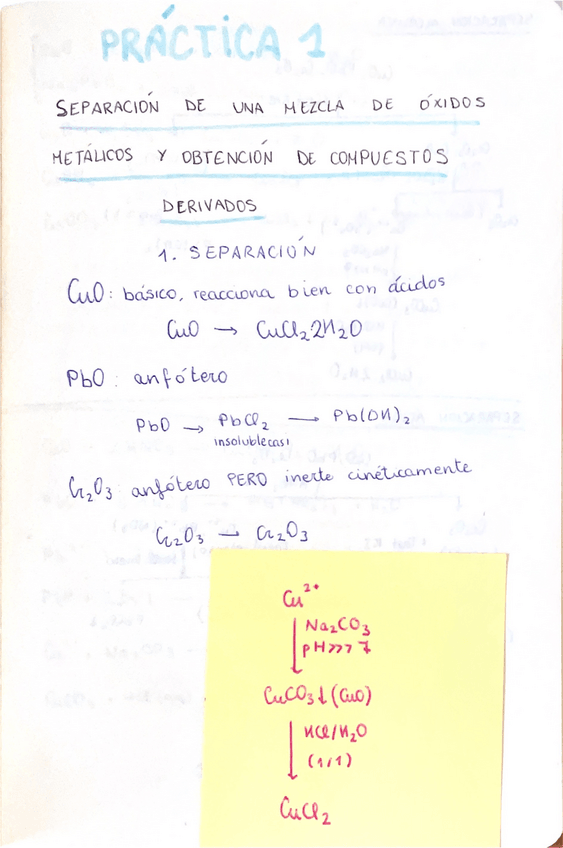 PRÁCTICA 1
SEPARACIÓN DE UNA MEZCLA DE ÓXIDOS
METÁLICOS Y OBTENCIÓN DE COMPUESTOS
DERIVADOS
1. SEPARACIÓN
CuO: básico, reacciona bien con ácidos
CuO → CuCl₂2H₂O
PbO: anfótero
PbO → PbCl₂ → Pb(OH)₂
insoluble casi
Cr₂O₃: anfótero PERO inerte cinéticamente
Cr₂O₃ → Cr₂O₃
Cu²⁺
Na₂CO₃
pH>>> 7
CuCO₃↓(CuO)
HCl/H₂O
(1/1)
CuCl₂